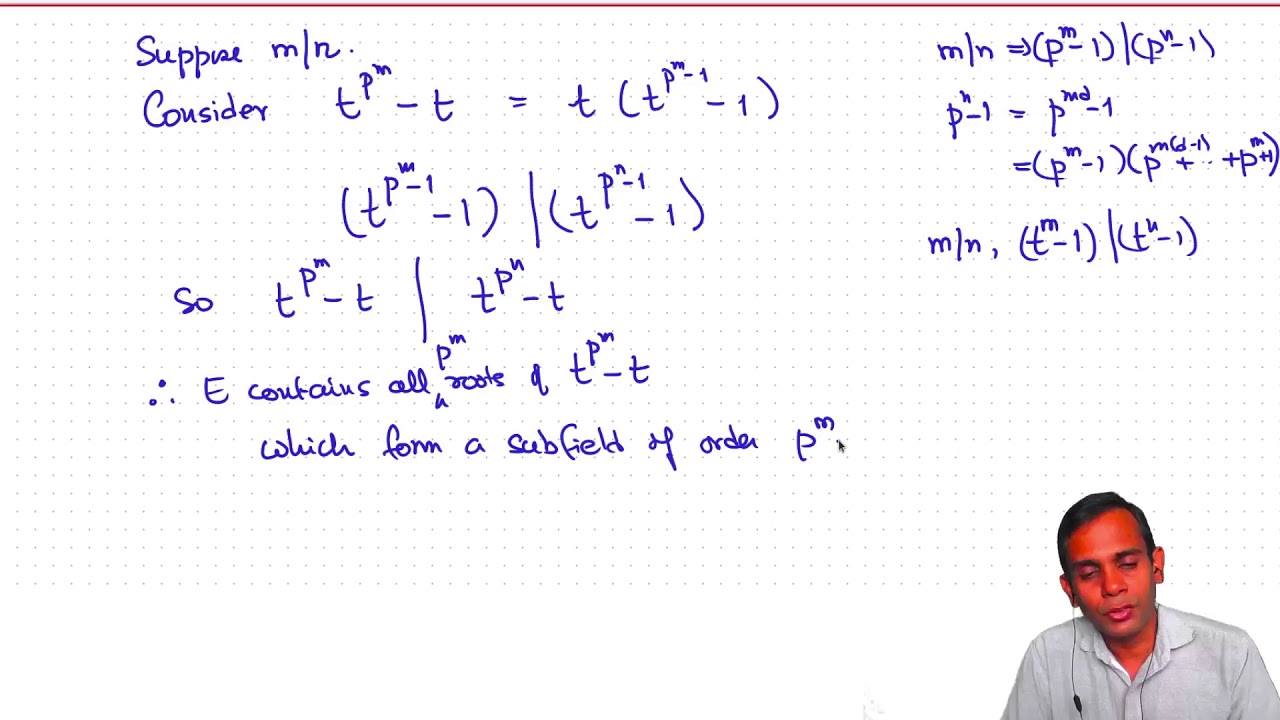 Suppose m|n.
Consider t^{p^m} - t = t (t^{p^m - 1} - 1)
(t^{p^m - 1} - 1) | (t^{p^n - 1} - 1)
So t^{p^m} - t | t^{p^n} - t
∴ E contains all p^m roots of t^{p^m} - t
which form a subfield of order p^m
m|n ⇒ (p^m - 1) | (p^n - 1)
p^n - 1 = p^{md} - 1
= (p^m - 1)(p^{m(d-1)} + ·· + p^m + 1)
m|n, (t^m - 1) | (t^n - 1)